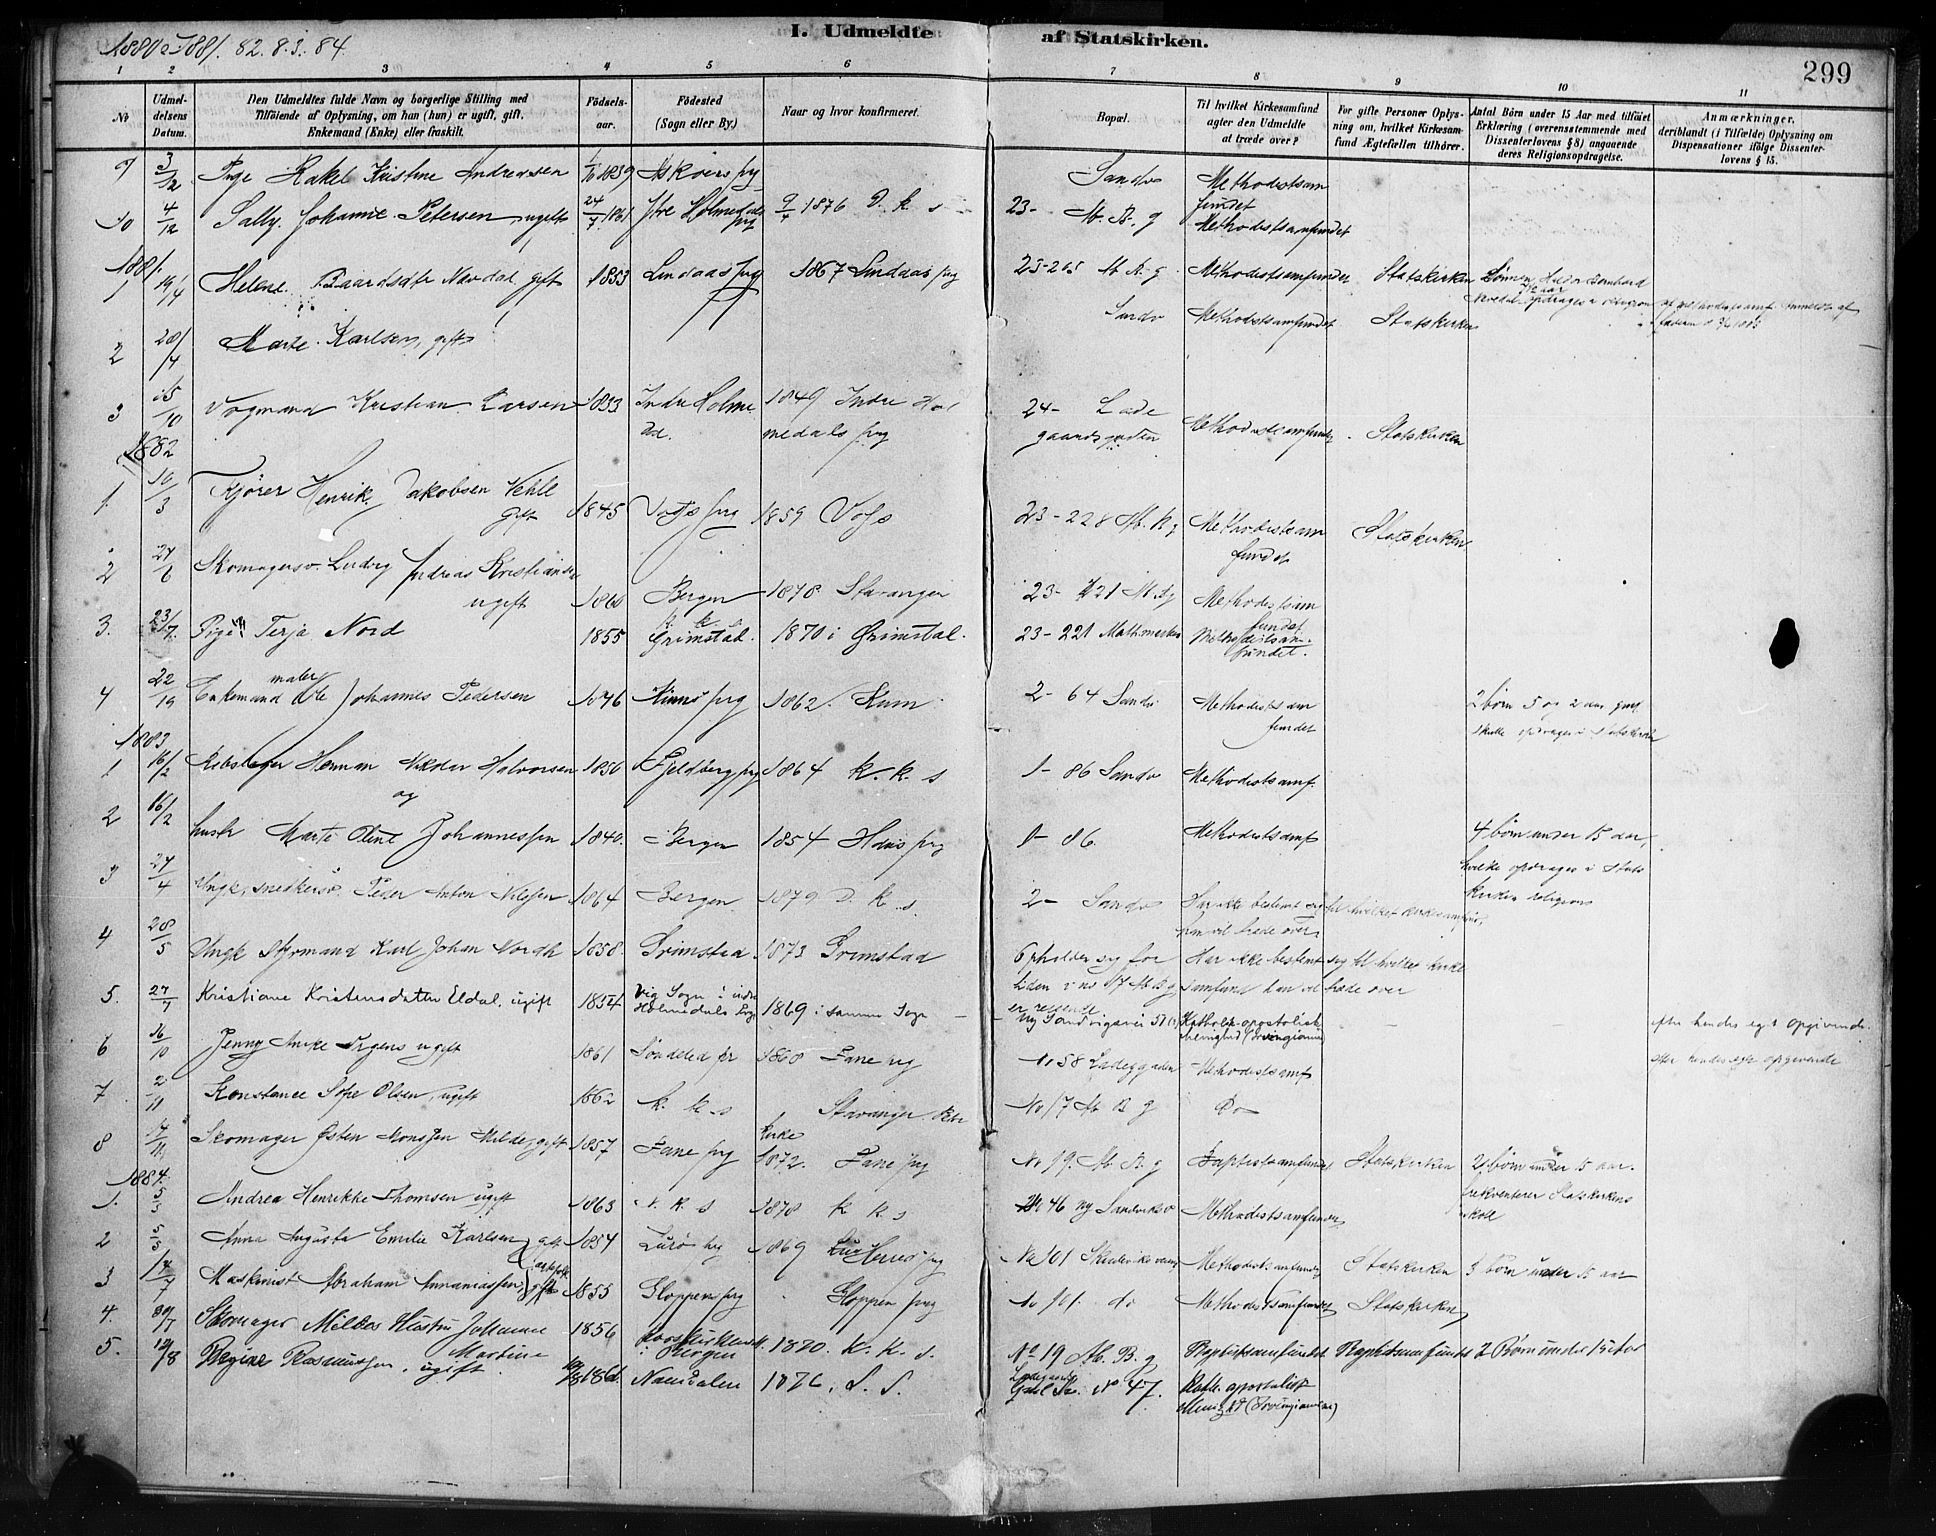 1880 & 1881. 82. 83. 84.
I. Udmeldte af Statskirken.
299
1 2 3 4 5 6 7 8 9 10 11
No
Udmeldelsens Datum.
Den Udmeldtes fulde Navn og borgerlige Stilling med Tilføiende af Oplysning, om han (hun) er ugift, gift, Enkemand (Enke) eller fraskilt.
Fødselsaar.
Fødested (Sogn eller By.)
Naar og hvor konfirmeret.
Bopæl.
Til hvilket Kirkesamfund agter den Udmeldte at træde over?
For gifte Personer Oplysning om, hvilket Kirkesamfund Ægtefællen tilhører.
Antal Börn under 15 Aar med tilføiet Erklæring (overensstemmende med Dissenterlovens § 8) angaaende deres Religionsopdragelse.
Anmærkninger, deriblandt (i Tilfælde) Oplysning om Dispensationer ifölge Dissenterlovens § 15.
9 3/12 Pige Rakel Kristine Andreassen 1839 Askvers prg Sandv Methodistsamfundet
10 4/12 Sally Johanne Petersen ugift 24/7 1861 Ytre Holmedals prg 1876 D. k. s 23- M. B. g Methodistsamfundet
1881.
1 19/4 Helene Baardsdtr Navdal, gift 1853 Lindaas prg 1867 Lindaas prg 23-205 M B. g. Methodistsamfundet Statskirken
2 20/4 Marte Karlsen, gift Sandv Methodistsamfundet Statskirken
3 15/10 Vognmand Kristian Larsen 1833 Indre Holmedal. 1849 Indre Holmedals prg 24- Ladegaardsgaden Methodistsamfundet. Statskirken
1882
1. 10/3 Kjører Henrik Jakobsen Vehle gift 1845 Voss prg 1859 Voss 23-228 M. B g Methodistsamfundet Statskirken
2 27/6 Skomagersv. Ludvig Andreas Kristiansen ugift 1860 Bergen 1878 Stavanger 23- 221 M. B g Methodistsamfundet
3. 23/7. Pige Terja Nord 1855 Grimstad. 1870 i Grimstad. 23-221 Methodistsamfundet.
4 22/10 Enkemand maler Ole Johannes Pedersen 1846 Kinns prg 1862. Kinn 2- 64 Sandv Methodistsamfundet 2 børn 5 og 2 aar gml, skulle opdrages i Statskirken
1883
1 16/2 Rebslager Herman Nikolai Halvorsen 1856 Fjeldberg prg 1864 K. k. s 1- 86 Sandv Methodistsamf.
og
2 16/2 hustr Marte Oline Johannessen 1840. Bergen 1854 Hans prg 1- 86 Methodistsamf 4 børn under 15 aar, hvilke opdrages i Statskirkens religion
3 27/4 Ungk, snedkersv. Peder Anton Nilssen 1864 Bergen 1879 D. k. s. 2- Sandv Har ikke bestemt sig til hvilket kirkesamfund han vil træde over
4 28/5 Ungk Styrmand Karl Johan Nordh 1858. Grimstad 1873 Grimstad Opholder sig for tiden i no 17 M B g er reisende Har ikke bestemt sig til hvilket kirkesamfund han vil træde over
5. 27/7 Kristiane Kristensdatter Eldal, ugift 1854 Vig Sogn i indre Holmedals Prg 1869 i samme Sogn Ny Sandvigsvei 51 Katholsk-apostolisk menighed (Irvingianer) – – efter hendes eget opgivende.
6 16/10 Jenny Anike Irgens ugift 1861 Søndeled pr Fane prg No 58 Ladeggaden Methodistsamf efter hendes eget opgivende
7 2/11 Konstance Sofie Olsen, ugift 1862 K. k. s Stavanger Petrikirke No 17 M B g Do
8 14/11 Skomager Østen Monssen Milde, gift 1857 Fane prg 1872. Fane prg No 19. M. B. g Baptistsamfundet Statskirken 2 børn under 15 aar. frekventerer Statskirkens skole
1884.
1. 5/3 Andrea Henrikke Thomsen ugift 1863 N. K. s 1878 K K s No 46 Ny Sandviksv Methodistsamfundet
2 5/3 Anna Augusta Emilie Karlsen gift 1854 Lurø prg 1869 Herrø prg No 101 Skudeviksveien Methodistsamfundet Statskirken 3 børn under 15 aar
3 17/7 Maskinist Abraham Annaniassen gift ægtefolk 1855 Gloppens prg Gloppen prg No 101. do Methodistsamfundet Statskirken
4. 30/7 Skomager Mildes Hustru Johanne Martine 1856 Korskirken i Bergen 1870. K. K. s. No 19 M. B. g Baptistsamfundet Baptistsamfundet 2 Børn under 15 Aar
5. 12/8 Regine Rasmussen, ugift. Namdalen 1876, S. S. No 47. Kath. apostolisk Menighed (Irvingianerne)